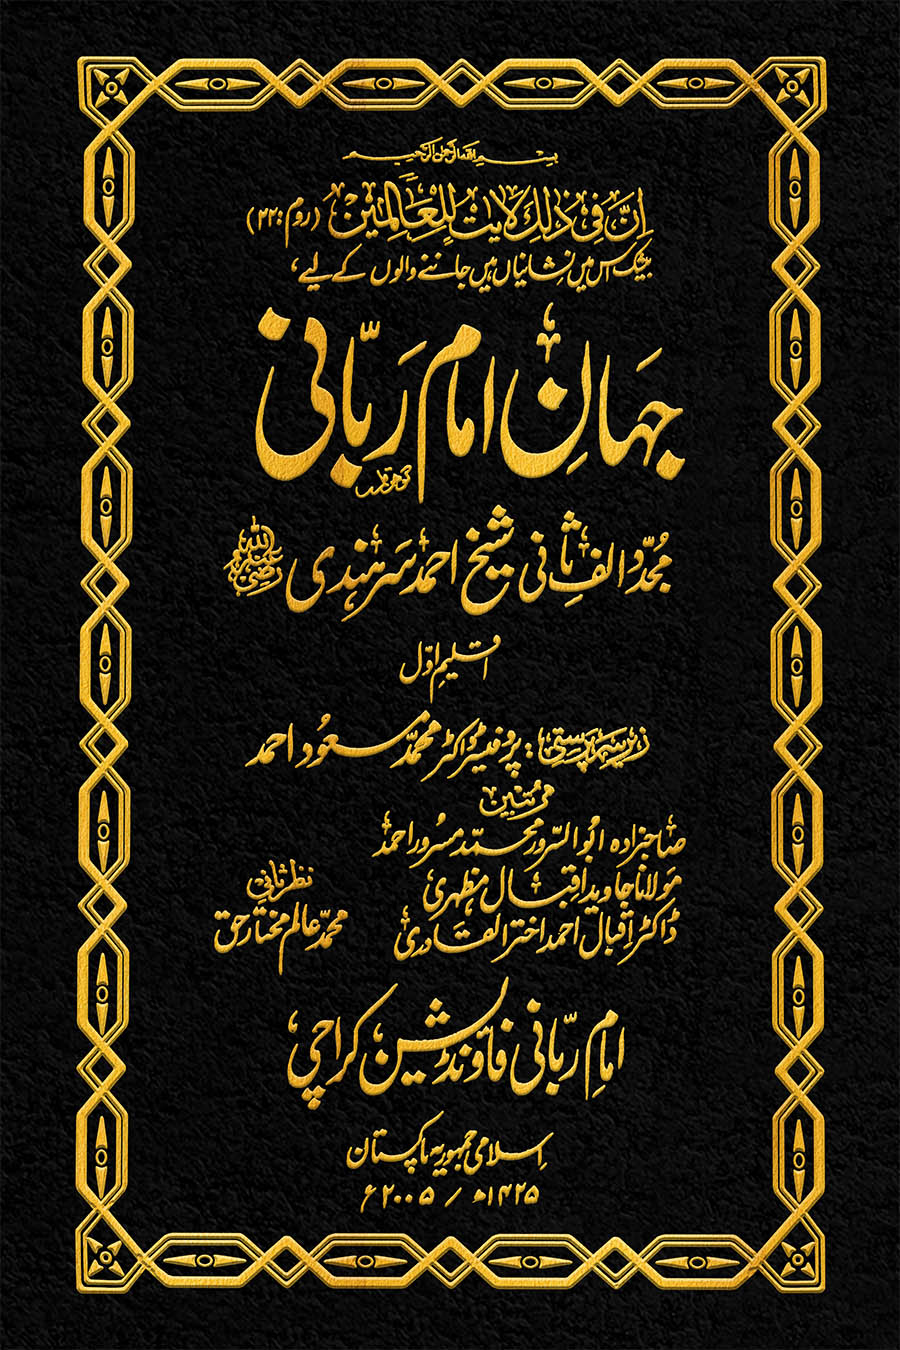 بسم اللہ الرحمن الرحیم
اِنَّ فِی ذٰلِکَ لَاٰیٰتٍ لِّلْعَالِمِیْنَ (روم:۲۲)
بیشک اس میں نشانیاں ہیں جاننے والوں کے لیے،
جہانِ امام رَبّانی
مُجدّد الفِ ثانی شیخ احمد سَرہندی رضی اللہ عنہ
اقلیمِ اوّل
زیرِ سرپرستی: پروفیسر ڈاکٹر محمّد مسعُود احمد
مرتبین
صاحبزادہ ابُوالسّرور محمّد مسرُور احمد
مَولانا جاوید اقبال مظہری
ڈاکٹر اِقبال احمد اختر القادری
نظرِ ثانی
محمّد عالم مختارِ حق
امامِ ربّانی فاؤنڈیشن کراچی
اِسلامی جمہوریہ پاکستان
۱۴۲۵ھ / ۲۰۰۵ء